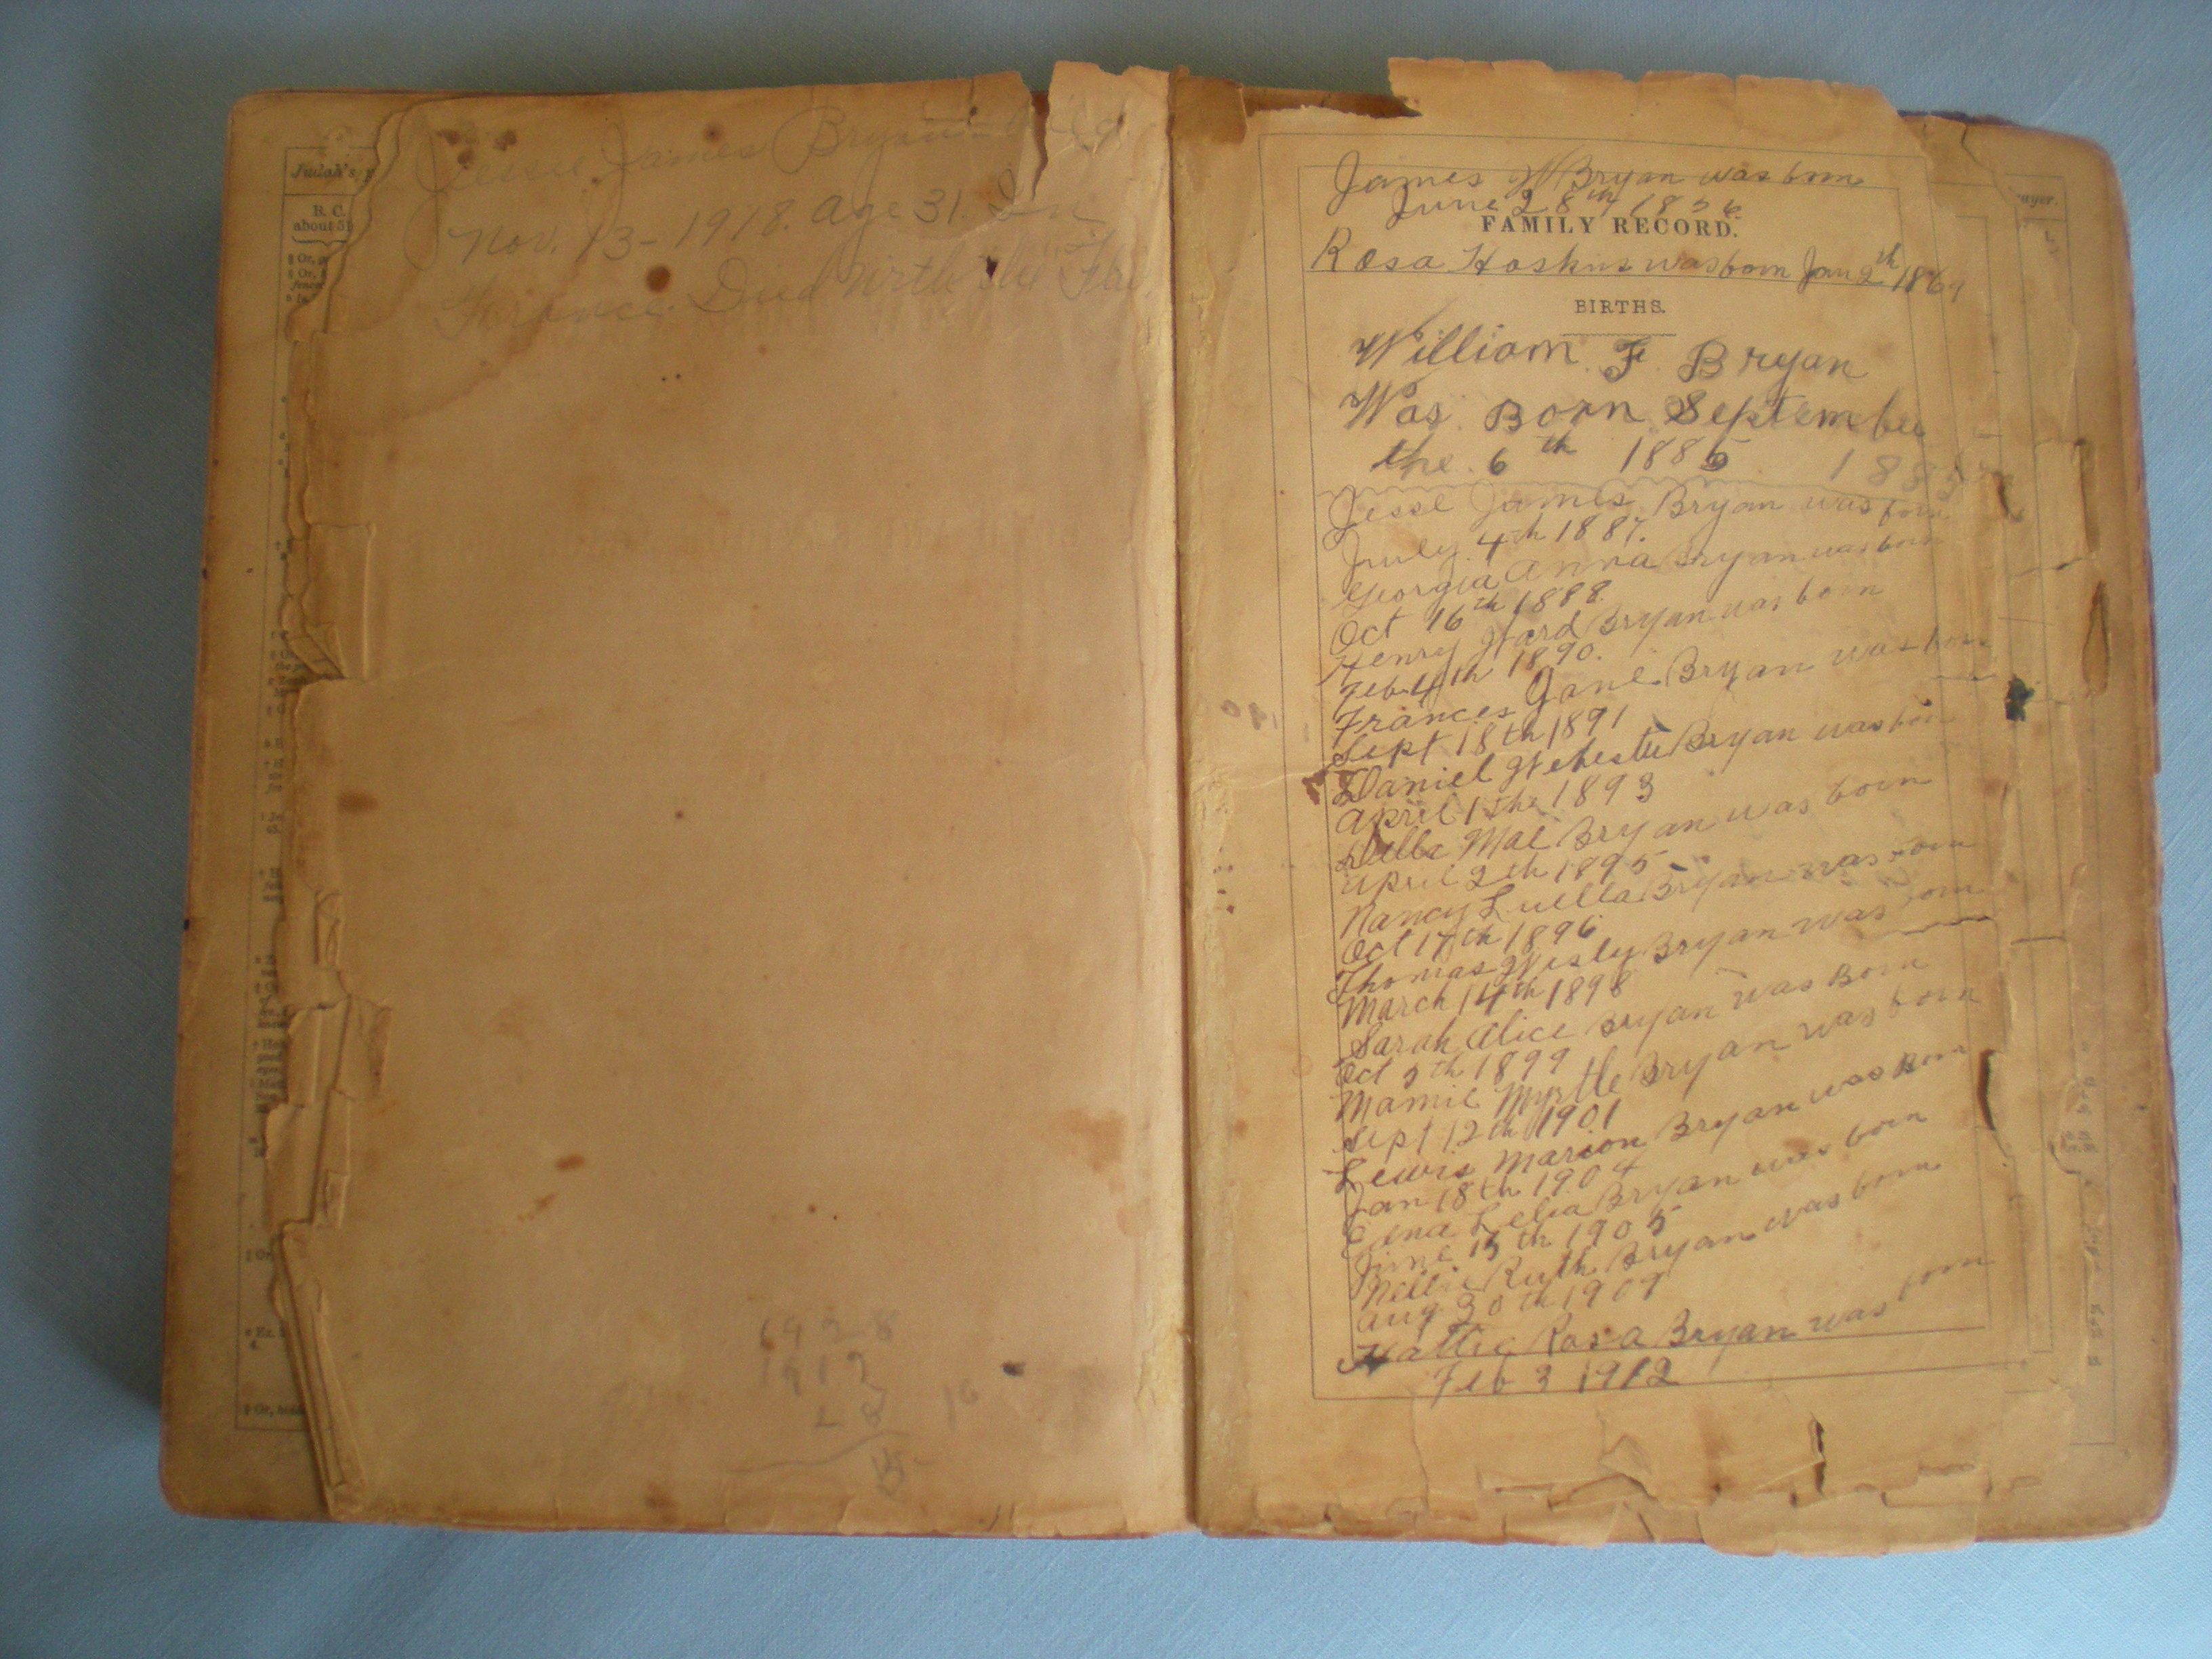 Judah's
B. C.
about 51
Jessie James Bryan
Nov. 13 - 1918. age 31. In
France. Died with the Flu.
1928
1912
16
James W Bryan was born
June 28th 1856
FAMILY RECORD.
Rosa Hoskins was born Jan 2th 1869
BIRTHS.
William F Bryan
Was Born September
the 6th 1885 1885
Jesse James Bryan was born
July 4th 1887.
Georgia Anna Bryan was born
Oct 16th 1888.
Henry Ward Bryan was born
Feb 4th 1890.
Frances Jane Bryan was born
Sept 18th 1891
Daniel Webester Bryan was born
April 1the 1893
Della Mae Bryan was born
April 2th 1895
Nancy Luella Bryan was born
Oct 17th 1896
Thomas Wesly Bryan was born
March 14th 1898
Sarah Alice Bryan was Born
Oct 5th 1899
Mamie Myrtle Bryan was born
Sept 12th 1901
Lewis Marion Bryan was Born
Jan 18th 1904
Edna Lelia Bryan was born
June 15th 1905
Nellie Ruth Bryan was born
Aug 30th 1907
Hattie Rosa Bryan was born
Feb 3 1912